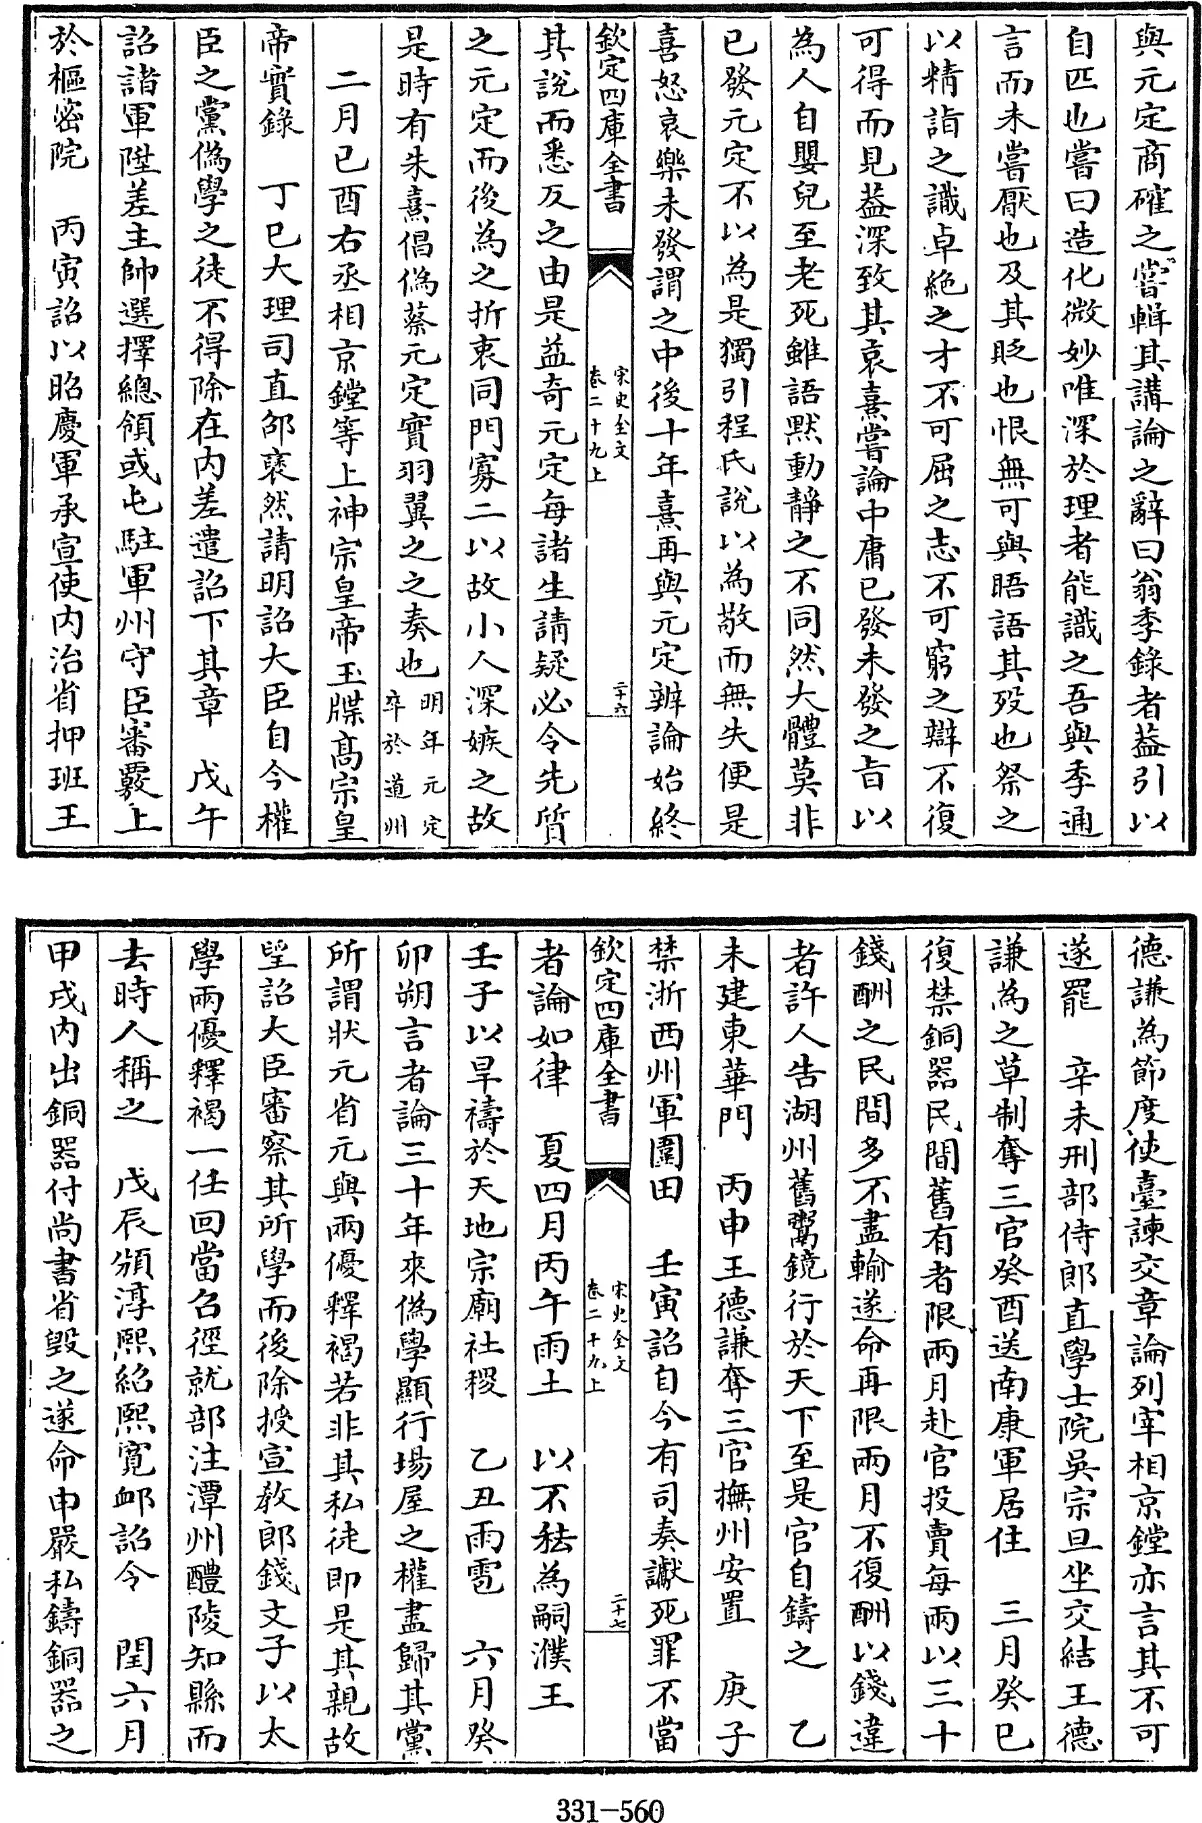 與元定商確之嘗輯其講論之辭曰翁季錄者葢引以
自匹也嘗曰造化微妙唯深於理者能識之吾與季通
言而未嘗厭也及其貶也恨無可與晤語其歿也祭之
以精詣之識卓絶之才不可屈之志不可窮之辯不復
可得而見葢深致其哀熹嘗論中庸已發未發之旨以
為人自嬰兒至老死雖語默動靜之不同然大體莫非
已發元定不以為是獨引程氏説以為敬而無失便是
喜怒哀樂未發謂之中後十年熹再與元定辨論始終
欽定四庫全書
宋史全文
卷二十九上
二十六
其說而悉反之由是益奇元定每諸生請疑必令先質
之元定而後為之折衷同門寡二以故小人深嫉之故
是時有朱熹倡僞蔡元定實羽翼之之奏也明年元定卒於道州
二月已酉右丞相京鏜等上神宗皇帝玉牒髙宗皇
帝實錄 丁巳大理司直邵裦然請明詔大臣自今權
臣之黨僞學之徒不得除在內差遣詔下其章 戊午
詔諸軍陞差主帥選擇總領或屯駐軍州守臣審覈上
於樞密院 丙寅詔以昭慶軍承宣使內治省押班王
德謙為節度使臺諫交章論列宰相京鏜亦言其不可
遂罷 辛未刑部侍郎直學士院吳宗旦坐交結王德
謙為之草制奪三官癸酉送南康軍居住 三月癸巳
復禁銅器民間舊有者限兩月赴官投賣每兩以三十
錢酬之民間多不盡輸遂命再限兩月不復酬以錢違
者許人告湖州舊鬻鏡行於天下至是官自鑄之 乙
未建東華門 丙申王德謙奪三官撫州安置 庚子
禁浙西州軍圍田 壬寅詔自今有司奏讞死罪不當
欽定四庫全書
宋史全文
卷二十九上
二十七
者論如律 夏四月丙午雨土 以不秳為嗣濮王
壬子以旱禱於天地宗廟社稷 乙丑雨雹 六月癸
卯朔言者論三十年來僞學顯行場屋之權盡歸其黨
所謂狀元省元與兩優釋褐若非其私徒即是其親故
望詔大臣審察其所學而後除授宣教郎錢文子以太
學兩優釋褐一任回當召徑就部注潭州醴陵知縣而
去時人稱之 戊辰頒淳熙紹熙寛䘏詔令 閏六月
甲戌內出銅器付尚書省毀之遂命申嚴私鑄銅器之
331-560